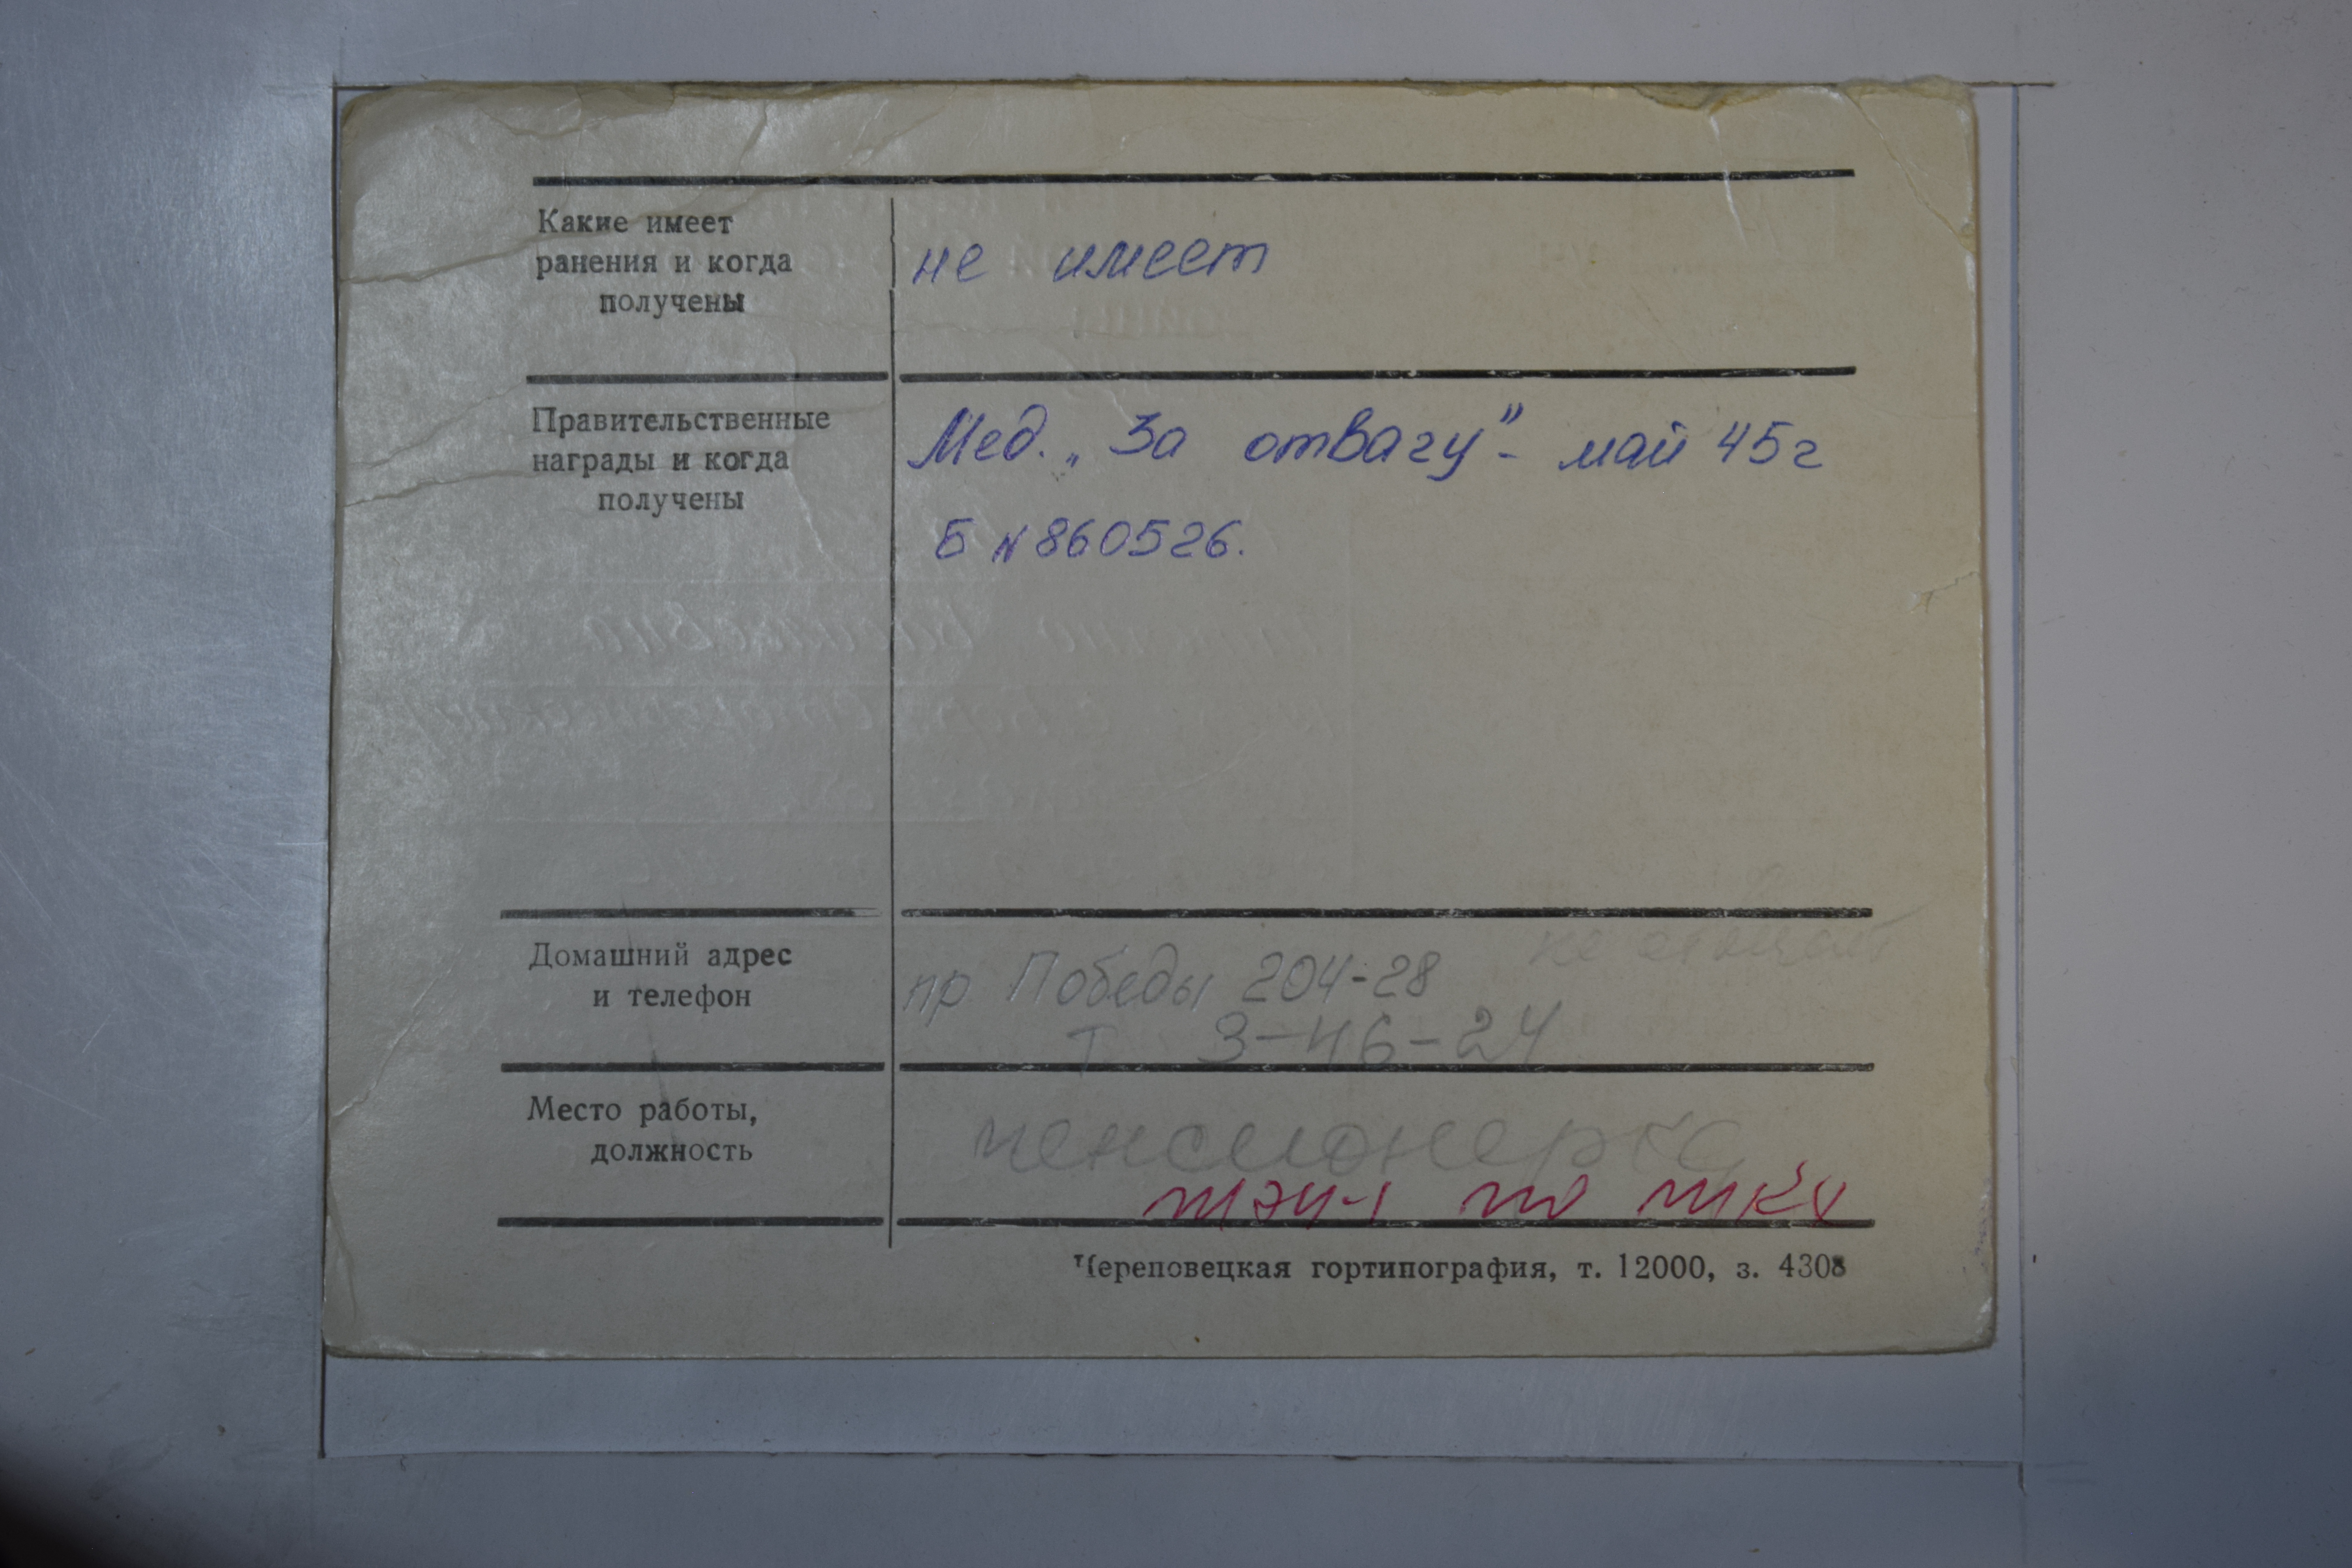 Какие имеет
ранения и когда
получены
не имеет
Правительственные
награды и когда
получены
Мед. „За отвагу" - май 45г
Б №860526.
Домашний адрес
и телефон
пр Победы 204-28
т 3-46-24
Место работы,
должность
пенсионерка
Череповецкая гортипография, т. 12000, з. 4308